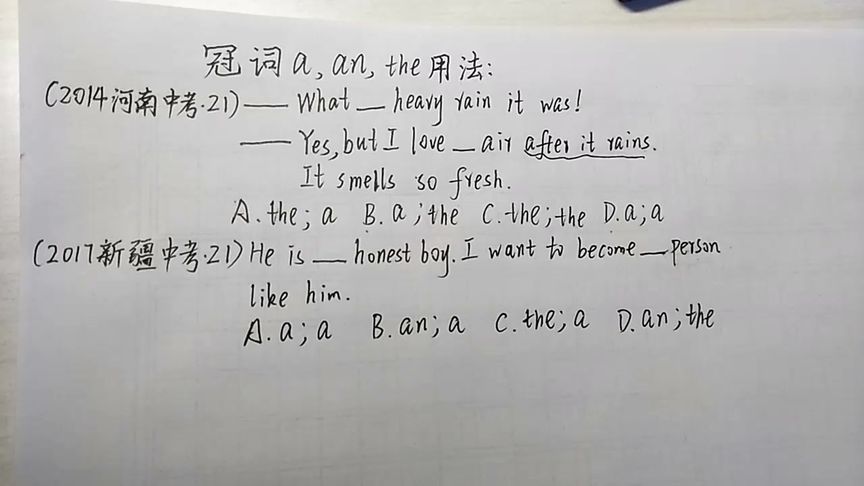 冠词a, an, the用法:
(2014河南中考·21)—— What __ heavy rain it was!
—— Yes, but I love __ air after it rains.
It smells so fresh.
A. the; a B. a; the C. the; the D. a; a
(2017新疆中考·21) He is __ honest boy. I want to become __ person
like him.
A. a; a B. an; a C. the; a D. an; the